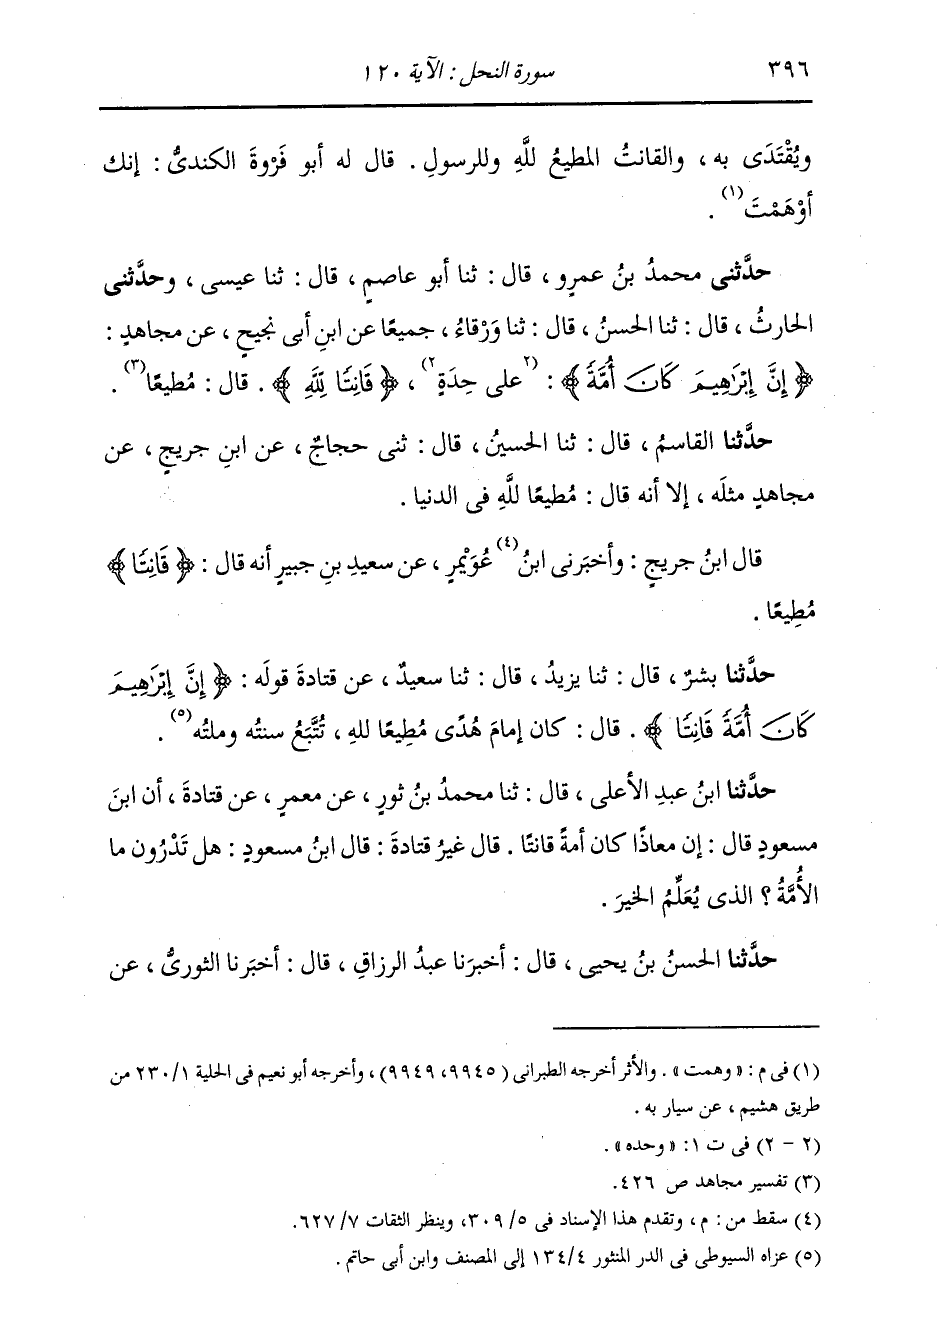 ٣٩٦ سورة النحل : الآية ١٢٠
ويُقْتَدَى به ، والقانتُ المطيعُ للَّهِ وللرسولِ . قال له أبو فَرْوةَ الكندىُّ : إنك
أوْهَمْتَ(١) .
حدَّثنى محمدُ بنُ عمرٍو ، قال : ثنا أبو عاصمٍ ، قال : ثنا عيسى ، وحدَّثنى
الحارثُ ، قال : ثنا الحسنُ ، قال : ثنا وَرْقاءُ ، جميعًا عن ابنِ أبى نجيحٍ ، عن مجاهدٍ :
﴿ إِنَّ إِبْرَٰهِيمَ كَانَ أُمَّةً ﴾ : (٢على حِدَةٍ٢) ، ﴿ قَانِتًا لِّلَّهِ ﴾ . قال : مُطيعًا(٣) .
حدَّثنا القاسمُ ، قال : ثنا الحسينُ ، قال : ثنى حجاجٌ ، عن ابنِ جريجٍ ، عن
مجاهدٍ مثلَه ، إلا أنه قال : مُطيعًا للَّهِ فى الدنيا .
قال ابنُ جريجٍ : وأخبَرنى ابنُ(٤) عُوَيْمرٍ ، عن سعيدِ بنِ جبيرٍ أنه قال : ﴿ قَانِتًا ﴾
مُطِيعًا .
حدَّثنا بشرٌ ، قال : ثنا يزيدُ ، قال : ثنا سعيدٌ ، عن قتادةَ قولَه : ﴿ إِنَّ إِبْرَٰهِيمَ
كَانَ أُمَّةً قَانِتًا ﴾ . قال : كان إمامَ هُدًى مُطِيعًا للهِ ، تُتَّبَعُ سنتُه وملتُه(٥) .
حدَّثنا ابنُ عبدِ الأعلى ، قال : ثنا محمدُ بنُ ثورٍ ، عن معمرٍ ، عن قتادةَ ، أن ابنَ
مسعودٍ قال : إن معاذًا كان أمةً قانتًا . قال غيرُ قتادةَ : قال ابنُ مسعودٍ : هل تَدْرُون ما
الأُمَّةُ ؟ الذى يُعَلِّمُ الخيرَ .
حدَّثنا الحسنُ بنُ يحيى ، قال : أخبرَنا عبدُ الرزاقِ ، قال : أخبَرنا الثورىُّ ، عن
(١) فى م : « وهمت » . والأثر أخرجه الطبرانى ( ٩٩٤٥، ٩٩٤٩) ، وأخرجه أبو نعيم فى الحلية ٢٣٠/١ من
طريق هشيم ، عن سيار به .
(٢ - ٢) فى ت ١: « وحده » .
(٣) تفسير مجاهد ص ٤٢٦.
(٤) سقط من : م ، وتقدم هذا الإسناد فى ٣٠٩/٥، وينظر الثقات ٦٢٧/٧.
(٥) عزاه السيوطى فى الدر المنثور ١٣٤/٤ إلى المصنف وابن أبى حاتم .